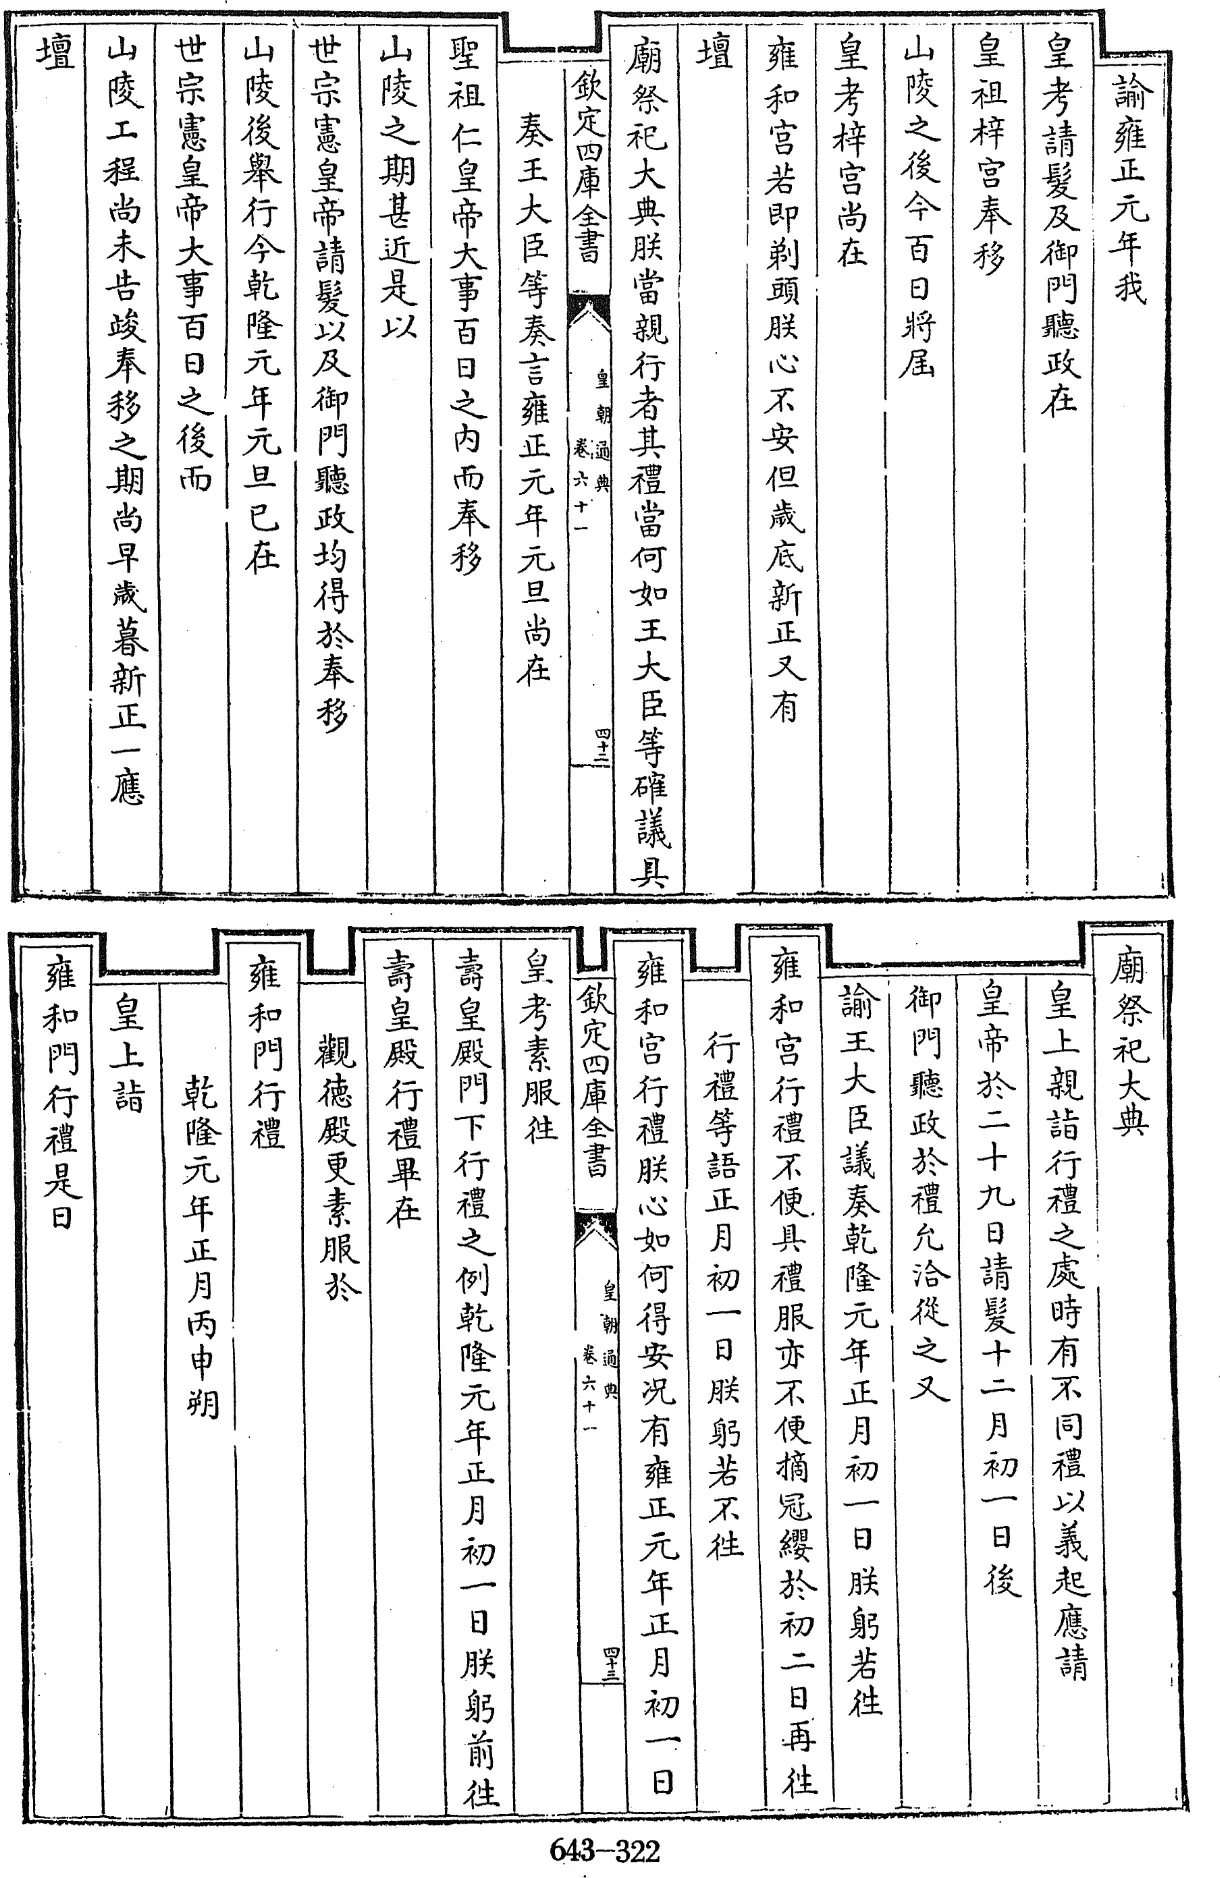 諭雍正元年我
皇考請髮及御門聽政在
皇祖梓宮奉移
山陵之後今百日將屆
皇考梓宮尚在
雍和宮若即剃頭朕心不安但歲底新正又有
壇
廟祭祀大典朕當親行者其禮當何如王大臣等確議具
欽定四庫全書
皇朝通典
卷六十一
四十三
奏王大臣等奏言雍正元年元旦尚在
聖祖仁皇帝大事百日之内而奉移
山陵之期甚近是以
世宗憲皇帝請髮以及御門聽政均得於奉移
山陵後舉行今乾隆元年元旦已在
世宗憲皇帝大事百日之後而
山陵工程尚未告竣奉移之期尚早歲暮新正一應
壇
廟祭祀大典
皇上親詣行禮之處時有不同禮以義起應請
皇帝於二十九日請髮十二月初一日後
御門聽政於禮允洽從之又
諭王大臣議奏乾隆元年正月初一日朕躬若徃
雍和宮行禮不便具禮服亦不便摘冠纓於初二日再徃
行禮等語正月初一日朕躬若不徃
雍和宮行禮朕心如何得安况有雍正元年正月初一日
欽定四庫全書
皇朝通典
卷六十一
四十三
皇考素服徃
壽皇殿門下行禮之例乾隆元年正月初一日朕躬前徃
壽皇殿行禮畢在
觀德殿更素服於
雍和門行禮
乾隆元年正月丙申朔
皇上詣
雍和門行禮是日
643-322